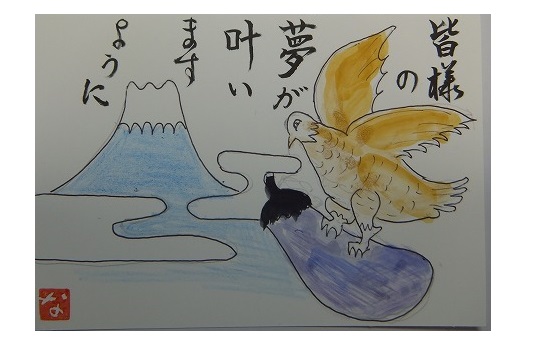 皆様
の
夢が
叶い
ます
ように
な